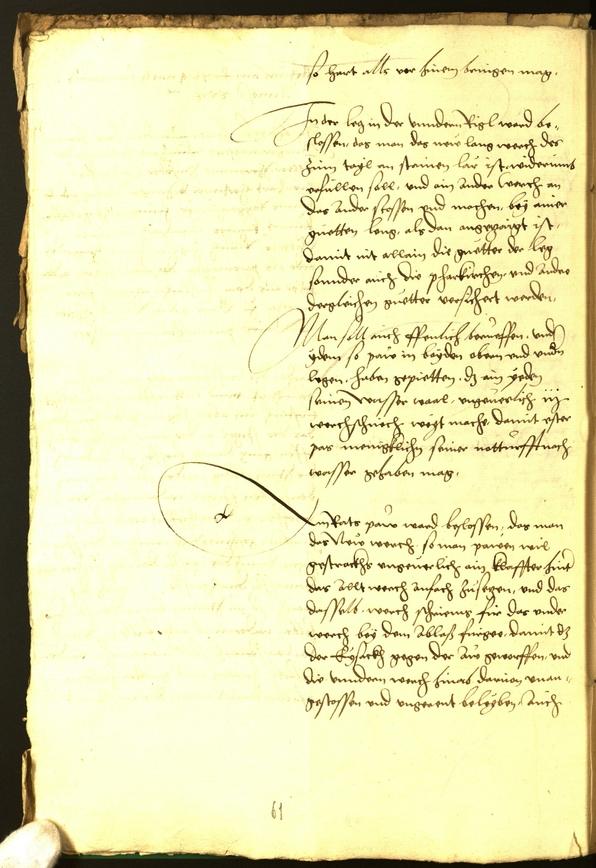 so hart alls vor hinein bringen mag.
In der leg in der unndern Rigl ward be-
slossen, das man das new lang werch des
zum tayl an stainen lär ist, widerumb
erfullen soll, und ain ander werch an
das ander stossen und machen, bey ainer
guetten leng, als dan angezaigt ist,
damit nit allain die guetter der leg
sonnder auch die pharkirchen und andre
dergleichen guetter versichert werden.
Man soll auch offenlich berueffen, und
ydem so paw in bayden obern und undern
legen, haben gepietten, das ain yeden
seinen wasser waal, ungeuerlich iij
werchschuech weyt mache, damit ester
pas meniklichen seiner notturfft nach
wasser gehaben mag.
In Rats paw ward beslossen, das man
das New werch so man pawen wil
gestrackhs ungeuerlich ain klaffter hint
das allt werch anfach zu setzen, und das
dasselb werch schreims für das under
werch bey dem Ablaß fürgee, damit das
der Eysackh gegen der Aw geworffen, und
die unndern werch hinab daruon unan-
gestossen und ungerent beleyben, Auch
61